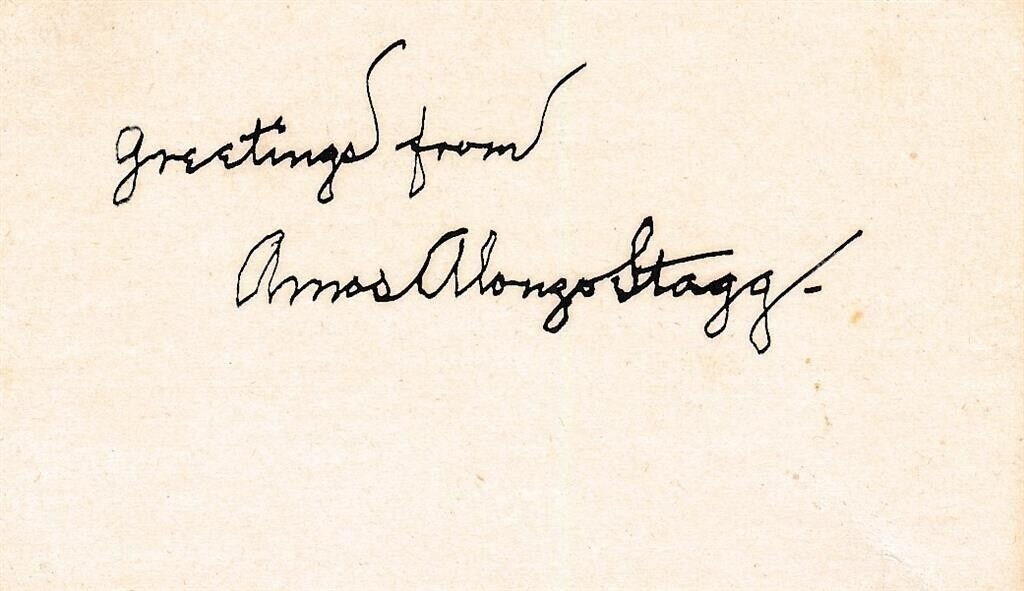 Greetings from
Amos Alonzo Stagg-